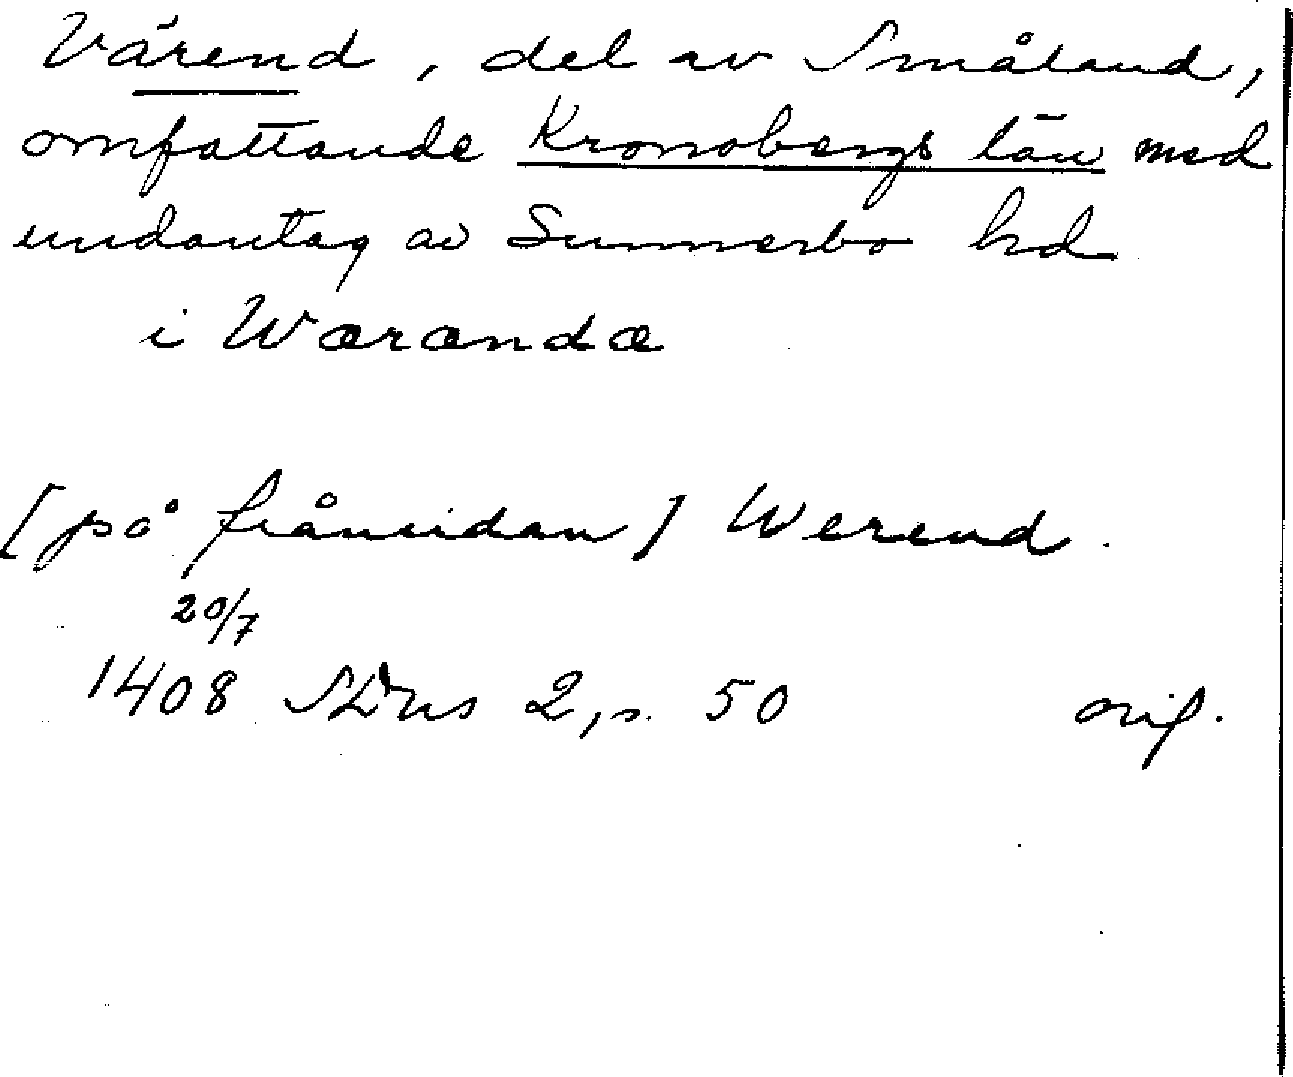 Värend, del av Småland,
omfattande Kronobergs län med
undantag av Sunnerbo hd
i Wærændæ
[på frånsidan] Werend.
20/7
1408 SDns 2, s. 50 orig.